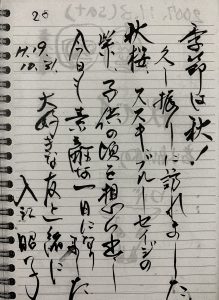 季節は秋!
久し振りに訪れました
秋桜、ススキ、ブルーセイジの
紫、子供の頃を想い出し
今日も素敵な一日になりました
大好きな友と一緒に
H.19.
10.31.